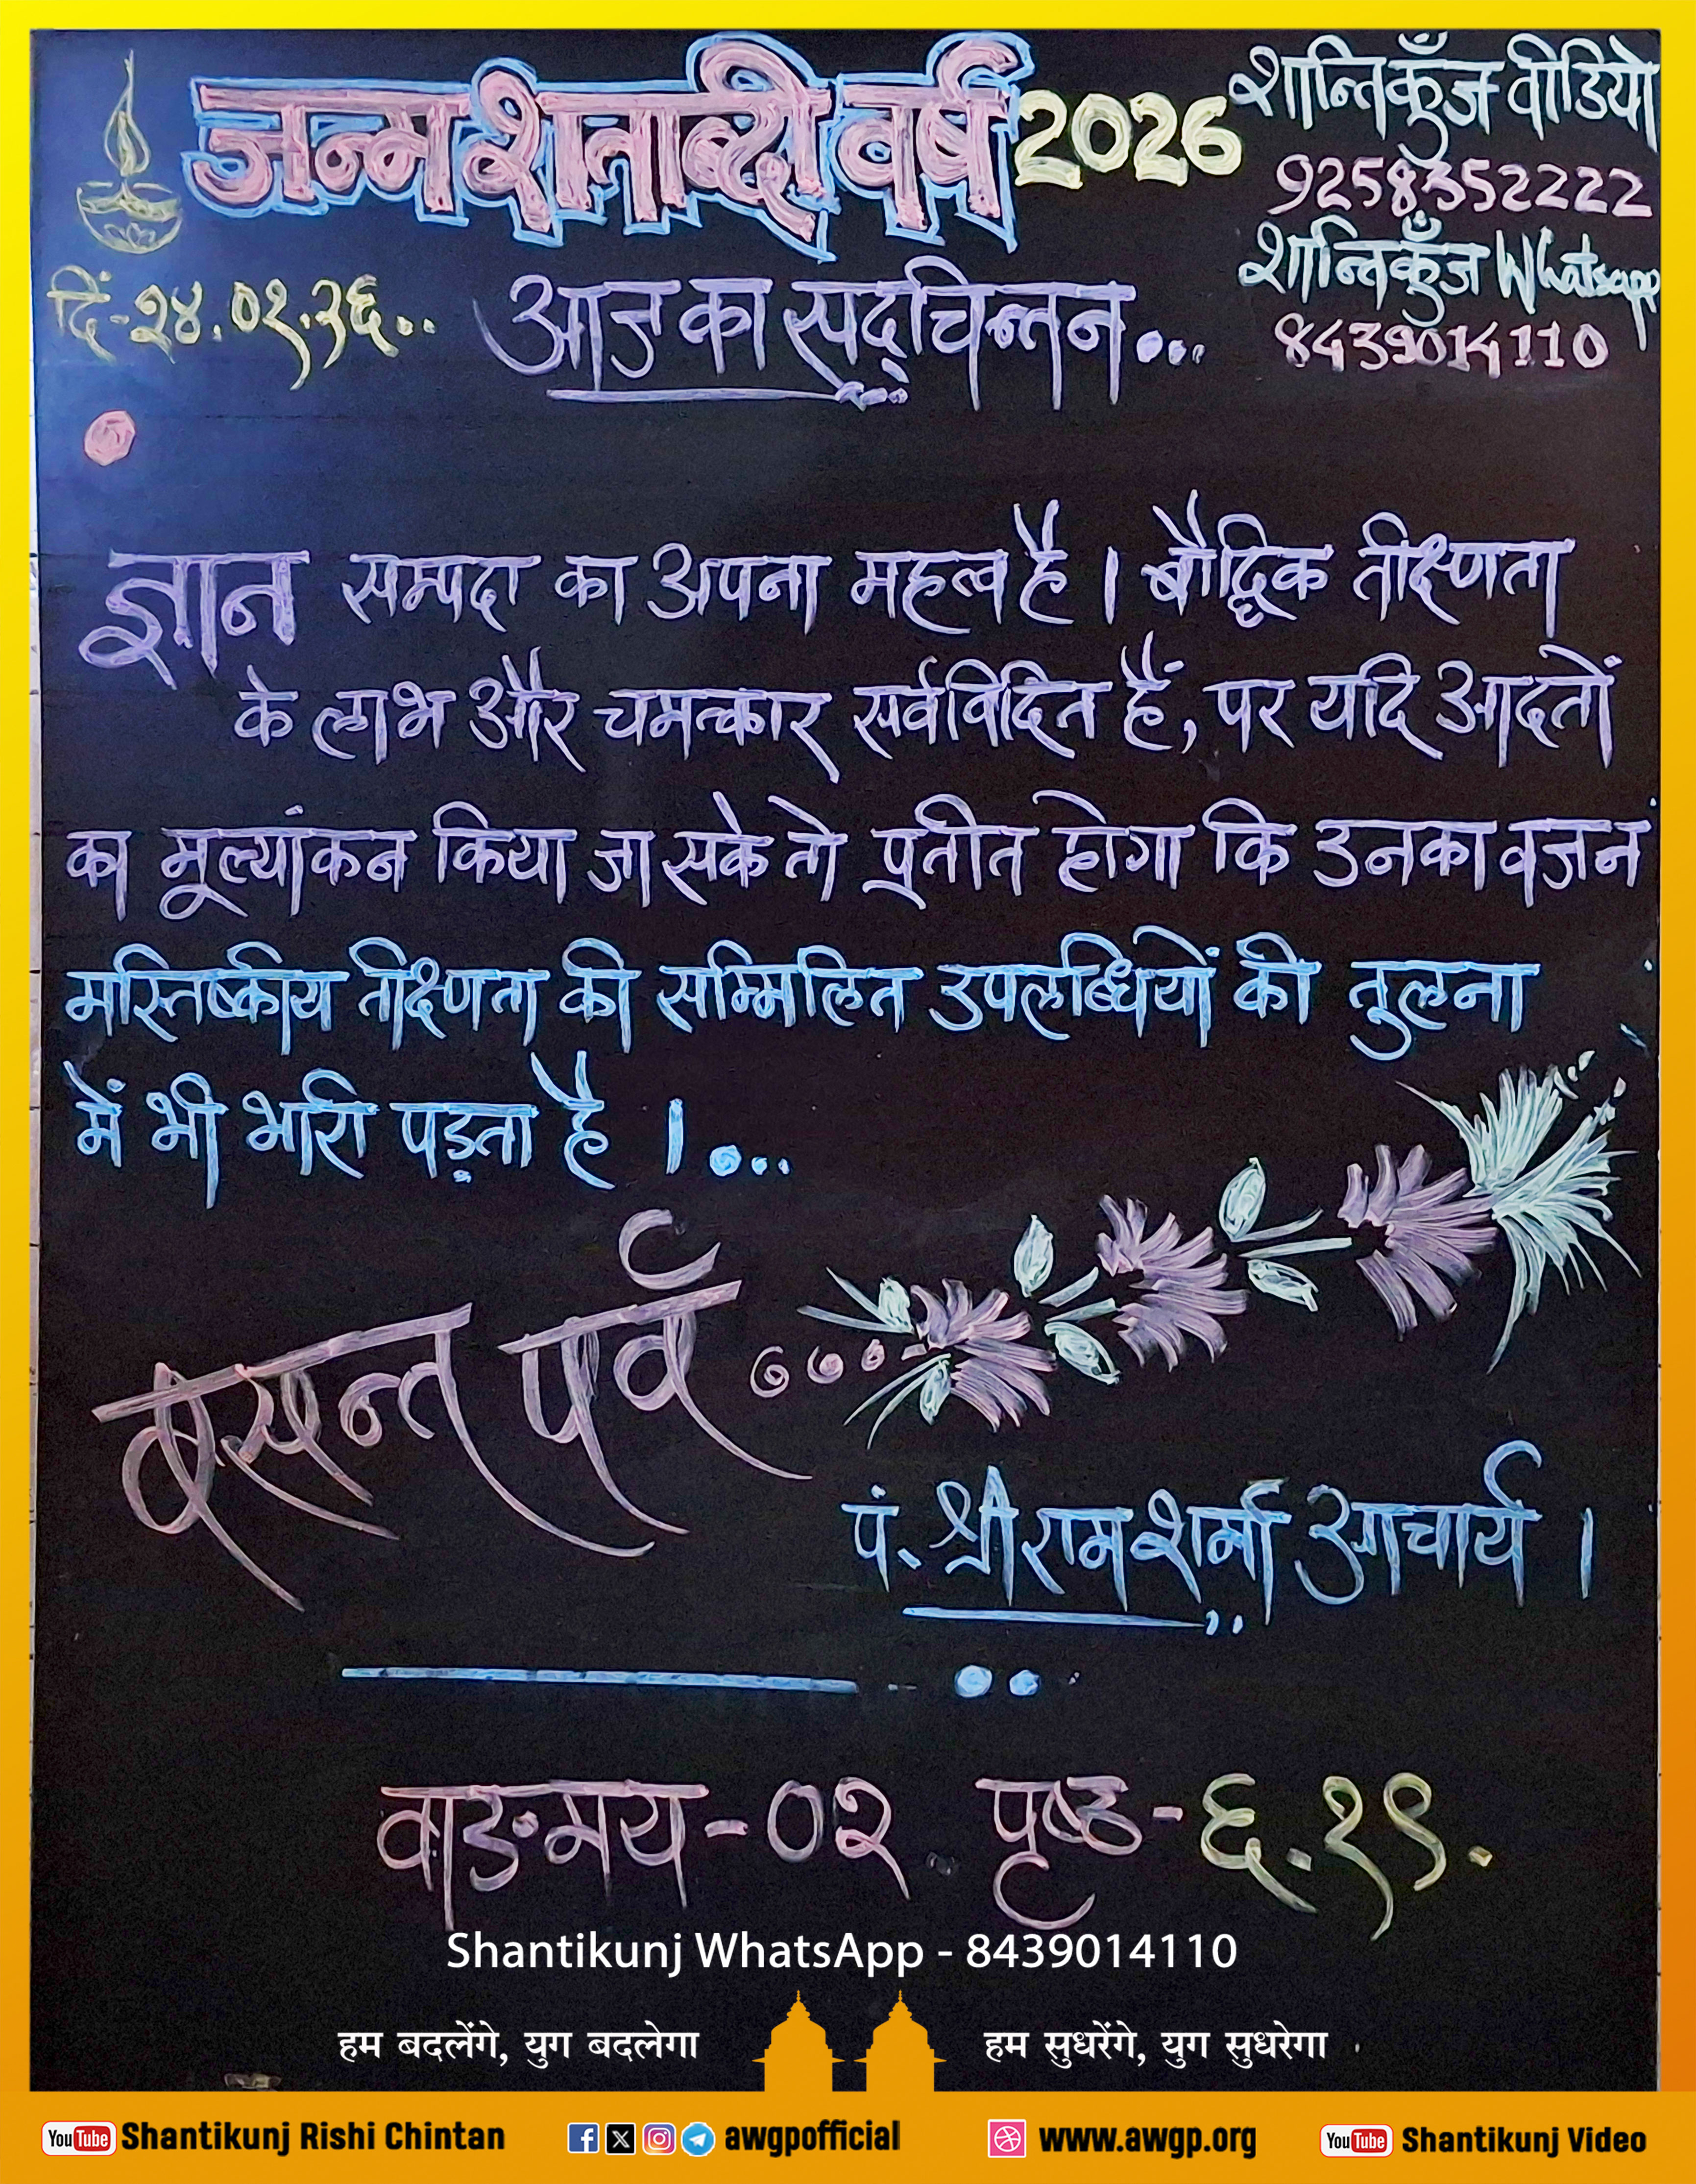 जन्म शताब्दी वर्ष 2026
शान्तिकुँज वीडियो
9258352222
शान्तिकुँज Whatsapp
8439014110
दिं-२४.०१.२६..
आज का सद्चिन्तन...
ज्ञान सम्पदा का अपना महत्व है । बौद्धिक तीक्ष्णता
के लाभ और चमत्कार सर्वविदित हैं, पर यदि आदतों
का मूल्यांकन किया जा सके तो प्रतीत होगा कि उनका वजन
मस्तिष्कीय तीक्ष्णता की सम्मिलित उपलब्धियों की तुलना
में भी भारी पड़ता है ।...
वसन्त पर्व...
पं. श्रीराम शर्मा आचार्य ।
वाङमय-०२ पृष्ठ-६.१९.
Shantikunj WhatsApp - 8439014110
हम बदलेंगे, युग बदलेगा हम सुधरेंगे, युग सुधरेगा
YouTube Shantikunj Rishi Chintan awgpofficial www.awgp.org YouTube Shantikunj Video